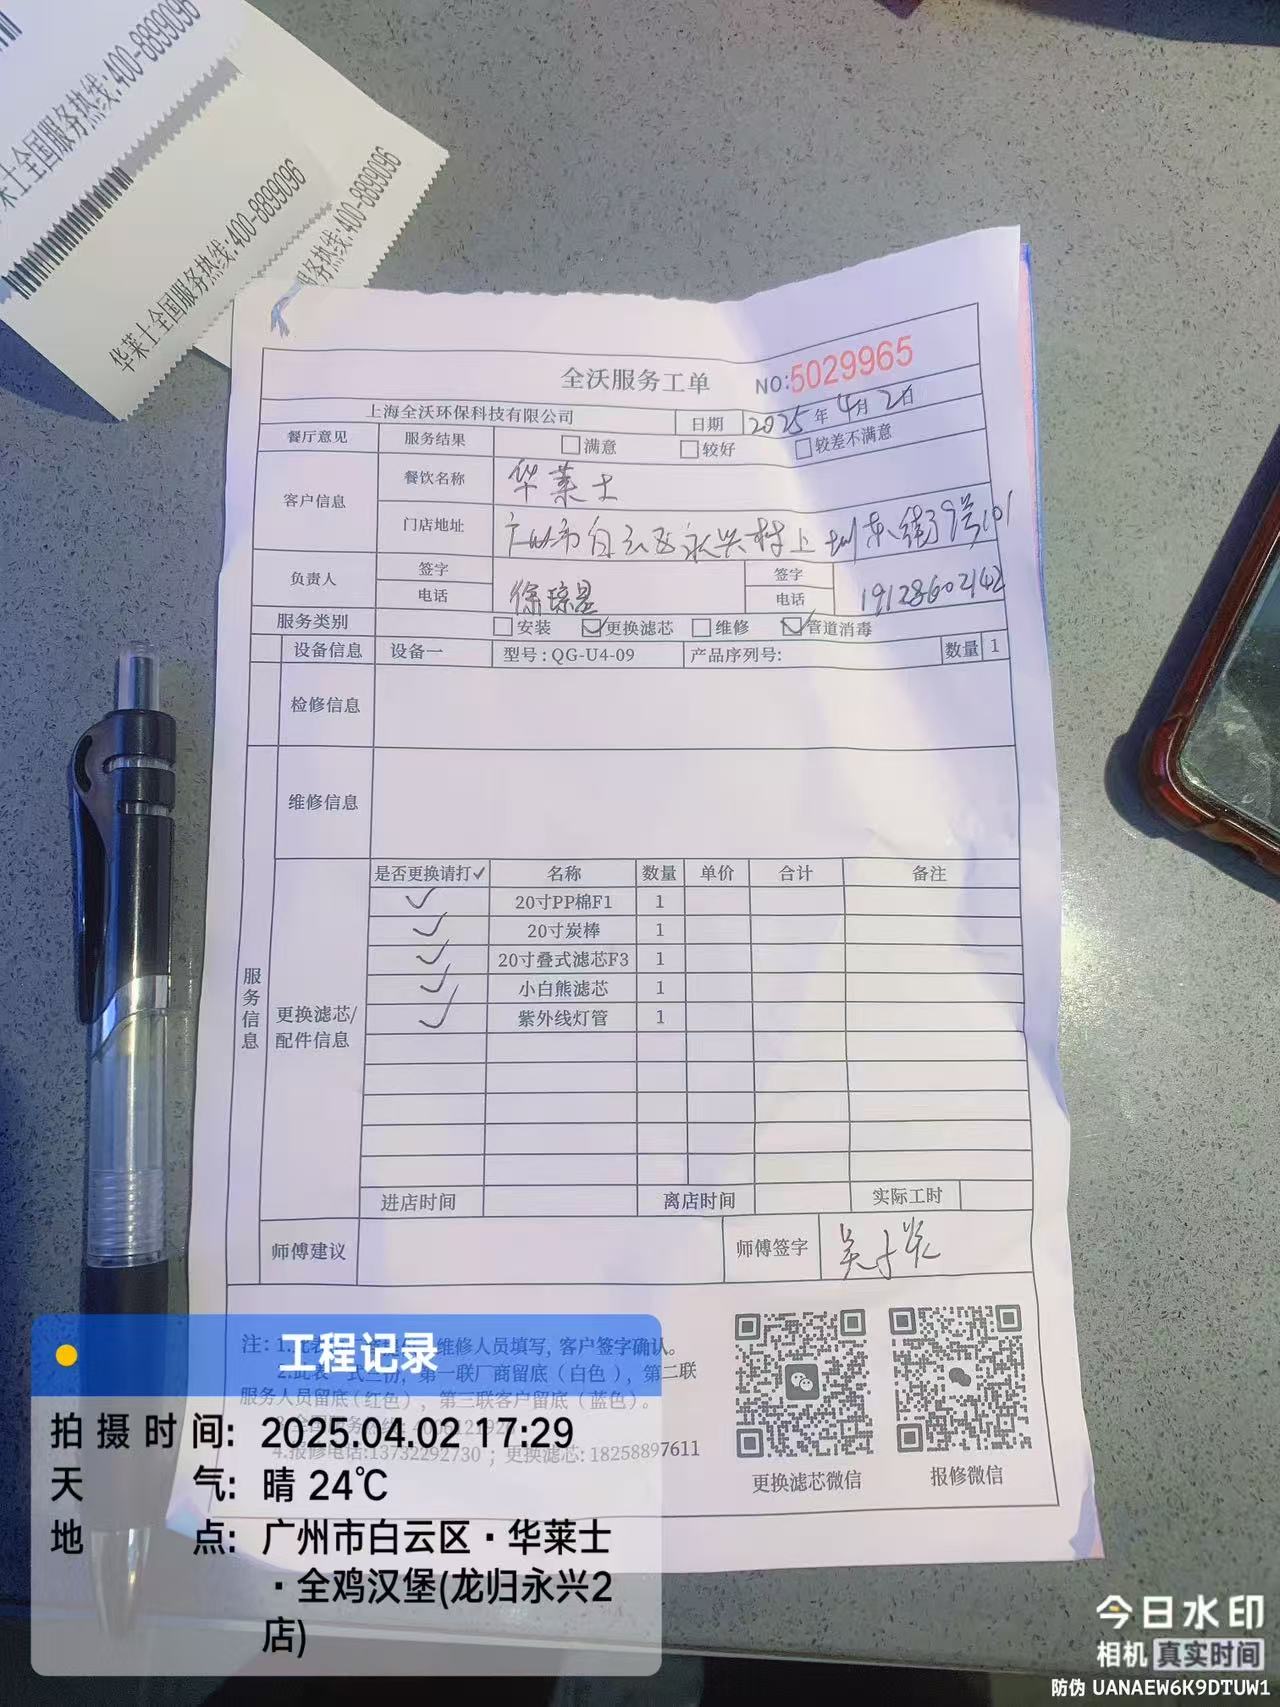 莱士全国服务热线:400-8899096
华莱士全国服务热线:400-8899096
服务热线:400-8899096
全沃服务工单 NO:5029965
上海全沃环保科技有限公司 日期 2025年4月2日
餐厅意见 服务结果 满意 较好 较差不满意
客户信息 餐饮名称 华莱士
门店地址 广州市白云区永兴村上圳东街39号101
负责人 签字 签字
电话 徐琼 电话 19128602142
服务类别 安装 更换滤芯 维修 管道消毒
设备信息 设备一 型号:QG-U4-09 产品序列号: 数量 1
检修信息
维修信息
服务信息
更换滤芯/配件信息
是否更换请打✓ 名称 数量 单价 合计 备注
✓ 20寸PP棉F1 1
✓ 20寸炭棒 1
✓ 20寸叠式滤芯F3 1
✓ 小白熊滤芯 1
✓ 紫外线灯管 1
进店时间 离店时间 实际工时
师傅建议 师傅签字 吴
注: 1.此表 维修人员填写, 客户签字确认。
2.此表一式三份, 第一联厂商留底(白色), 第二联
服务人员留底(红色), 第三联客户留底(蓝色)。
4.报修电话:13732292730 ; 更换滤芯: 18258897611
更换滤芯微信 报修微信
工程记录
拍摄时间: 2025.04.02 17:29
天气: 晴 24℃
地点: 广州市白云区·华莱士
·全鸡汉堡(龙归永兴2
店)
今日水印
相机 真实时间
防伪 UANAEW6K9DTUW1